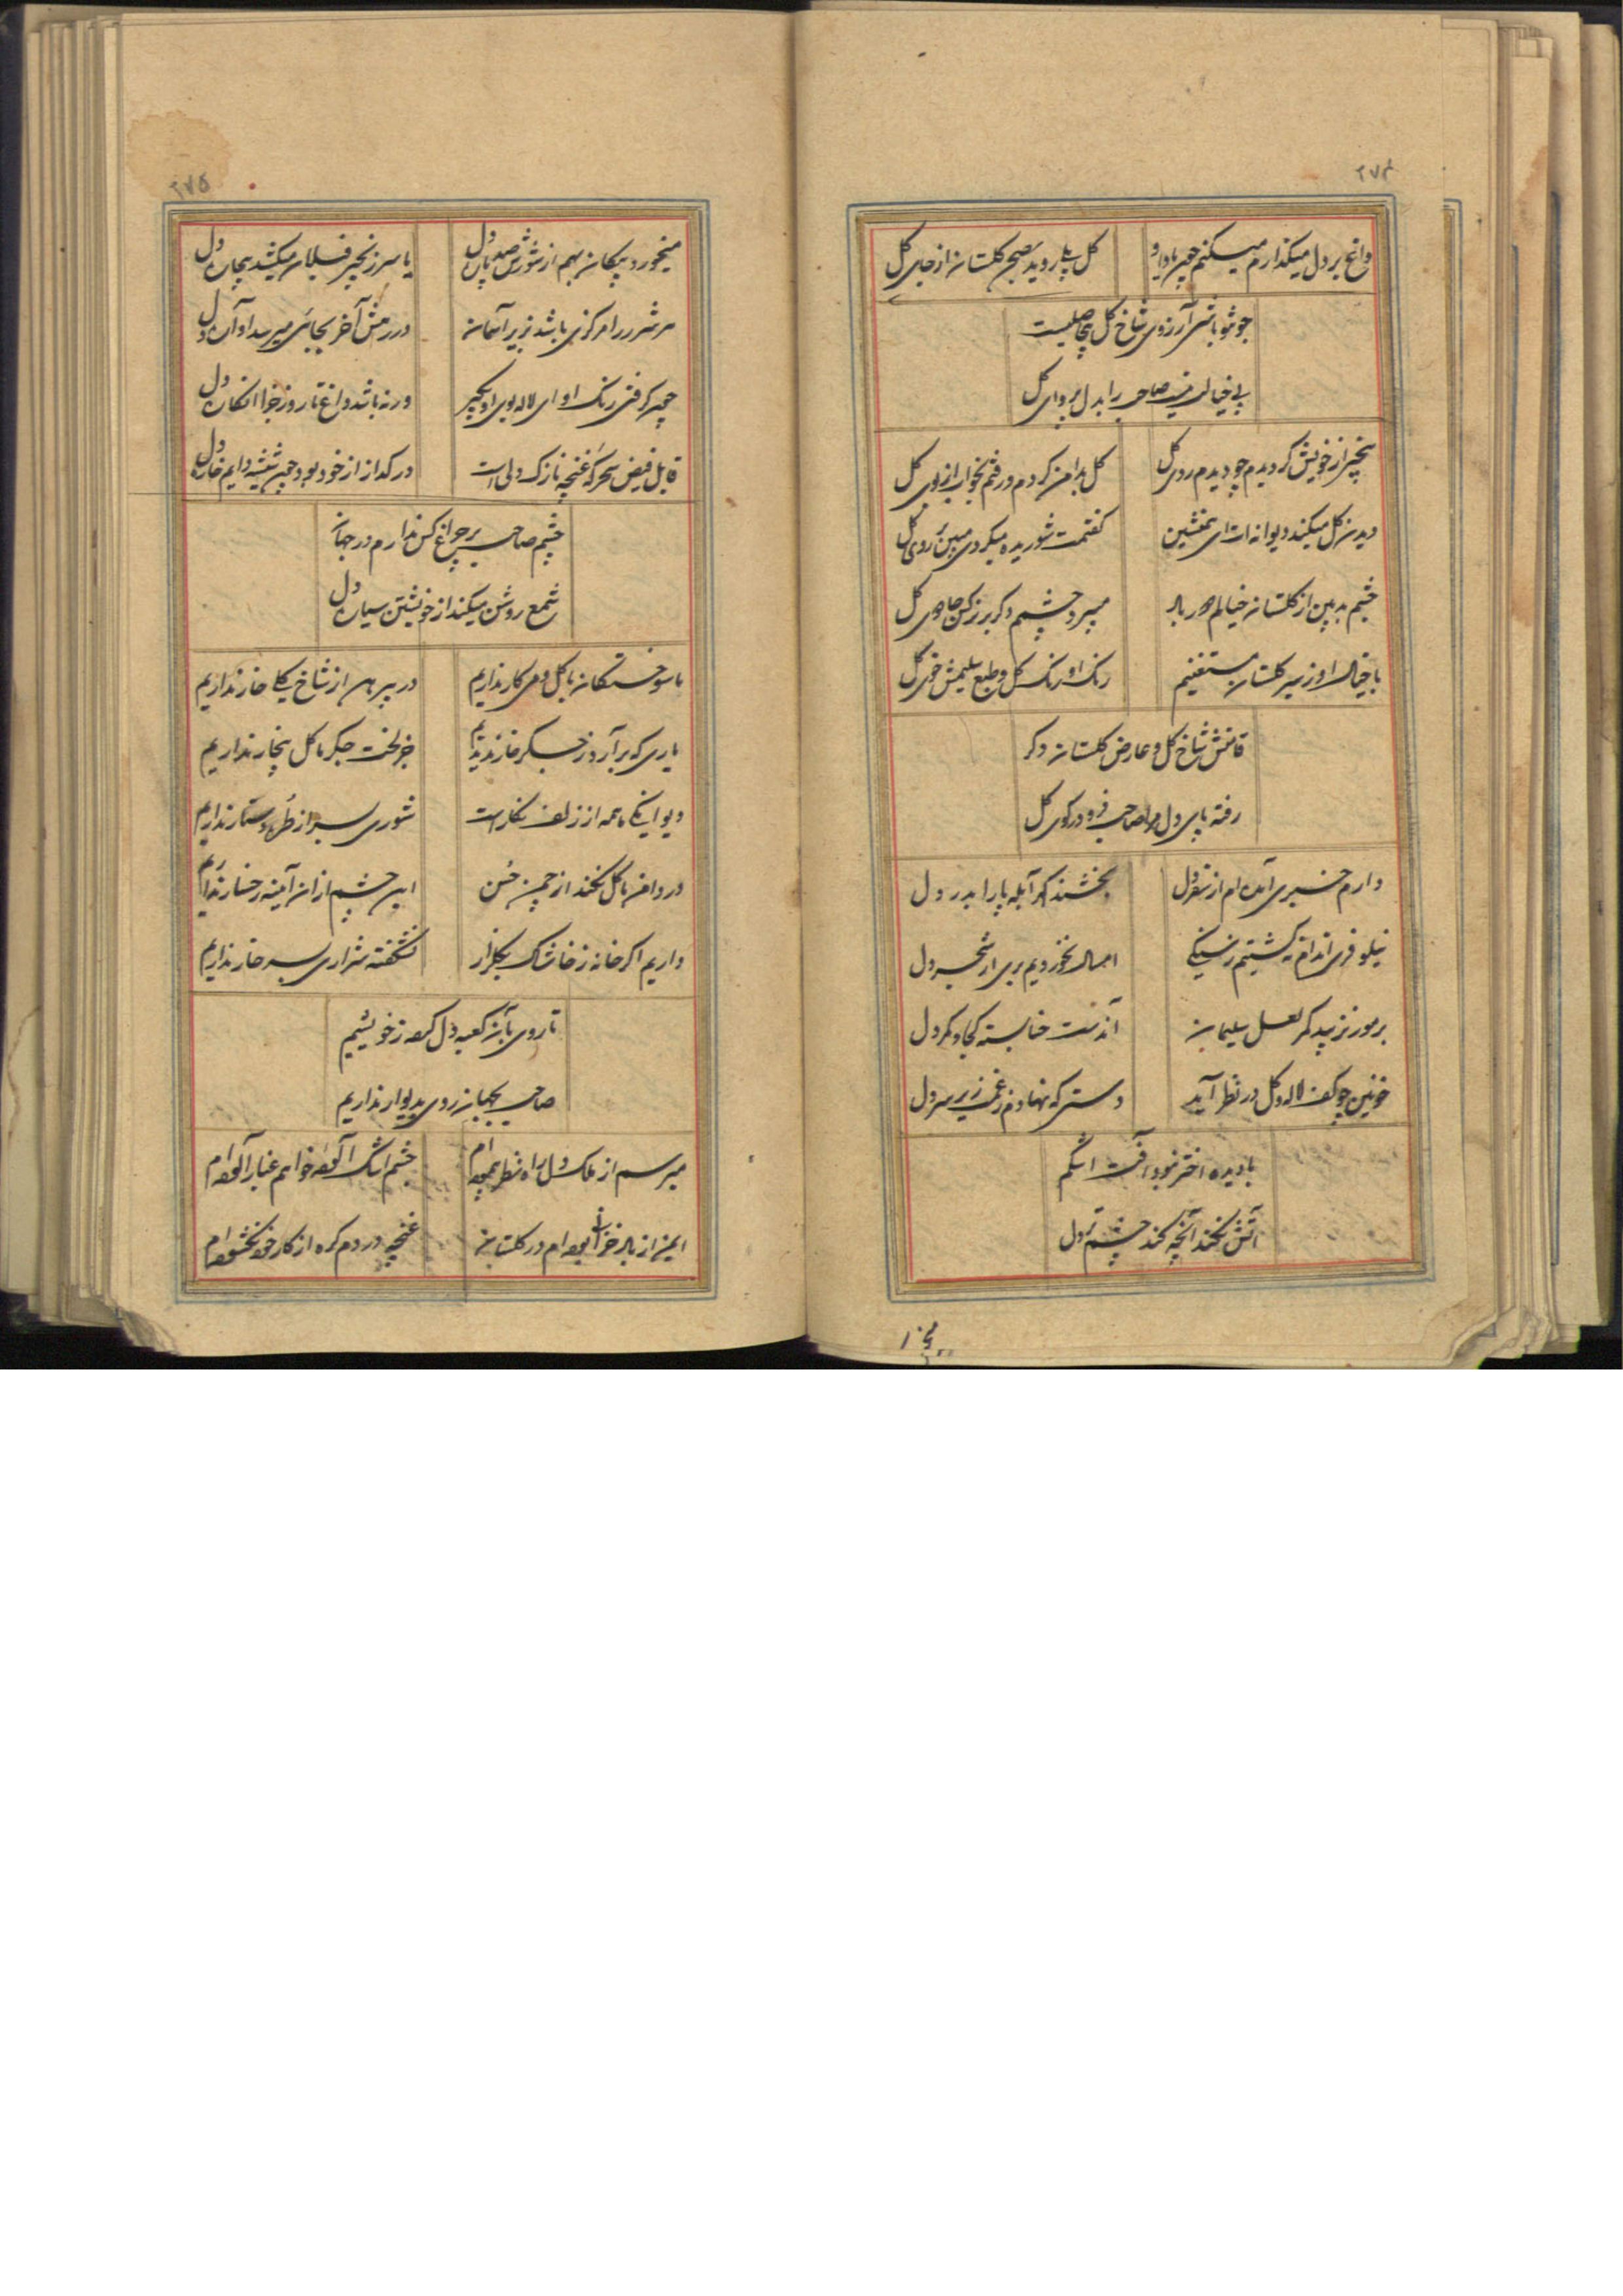 ۲۷۴
داغ بر دل میگذارم میکنم چون یاد او
گل بپا روید بصحن گلستان از جای گل
آرزوی شاخ گل بیحاصلیست
بی خیالت نیست صاحب را بدل پروای گل
بیخبر از خویش گردیدم چو دیدم روی گل
گل بدامن کردم و رفتم بخواب از بوی گل
دیدن گل میکند دیوانه ات ای همنشین
گفتمت شوریده میگردی مبین روی گل
چشم بد بین از گلستان خیالم دور باد
میبرد چشم دگر نرگس جادوی گل
با خیال او ز سیر گلستان مستغنیم
رنگ او رنگ گل و طبع سلیمش خوی گل
قامتش شاخ گل و عارض گلستان دگر
رفته پای دل مرا صاحب فرو در کوی گل
دارم خبری آمده ام از سفر دل
بخشند گهر آبله پا را بدر دل
امسال نخوردیم بری از شجر دل
بر مور نزیبد کمر لعل سلیمان
آندست حنا بسته کجا و کمر دل
خونین چو کف لاله و گل در نظر آید
دستی که نهادم ز غمت زیر سر دل
با دیده اختر نبود آفت اشکم
آتش نکند آنچه کند چشم تر دل
میخورد
۲۷۵
میخورد پیکان بهم از شورش صد پاره دل
یا سر زنجیر فیلان میکشد بیچاره دل
هر شرر را مرکزی باشد بزیر آسمان
در رمش آخر بجائی میرسد آواره دل
چون گرفتی رنگ او ای لاله بوی او بگیر
ورنه باشد داغ تا روز جزا انکاره دل
قابل فیض سحر گه غنچه نازک دلی است
در گداز از خود بود چون شیشه دایم خاره دل
چشم صاحب بر چراغ کس ندارم در جهان
شمع روشن میکند از خویشتن سیاره دل
ما سوختگان با گل و می کار نداریم
در پیرهن از شاخ گل خار نداریم
یاری که برآرد ز جگر خار ندیدیم
جز لخت جگر ما گل بیخار نداریم
دیوانگی ما همه از زلف نگار است
شوری بسر از طره دستار نداریم
در دامن ما گل نکند از چمن حسن
این چشم از ان آینه رخسار نداریم
داریم اگر خانه ز خاشاک بگلزار
نشکفته شراری بسر خار نداریم
تا روی بآن کعبه دل کرده ز خویشیم
صاحب بجهان روی بدیوار نداریم
میرسم از ملک دل راه نظر پیموده ام
چشم اشک آلوده خواهم غبار آلوده ام
ایمن از باد خزان بوده ام در گلستان
غنچه در دم گره از کار خود نگشوده ام